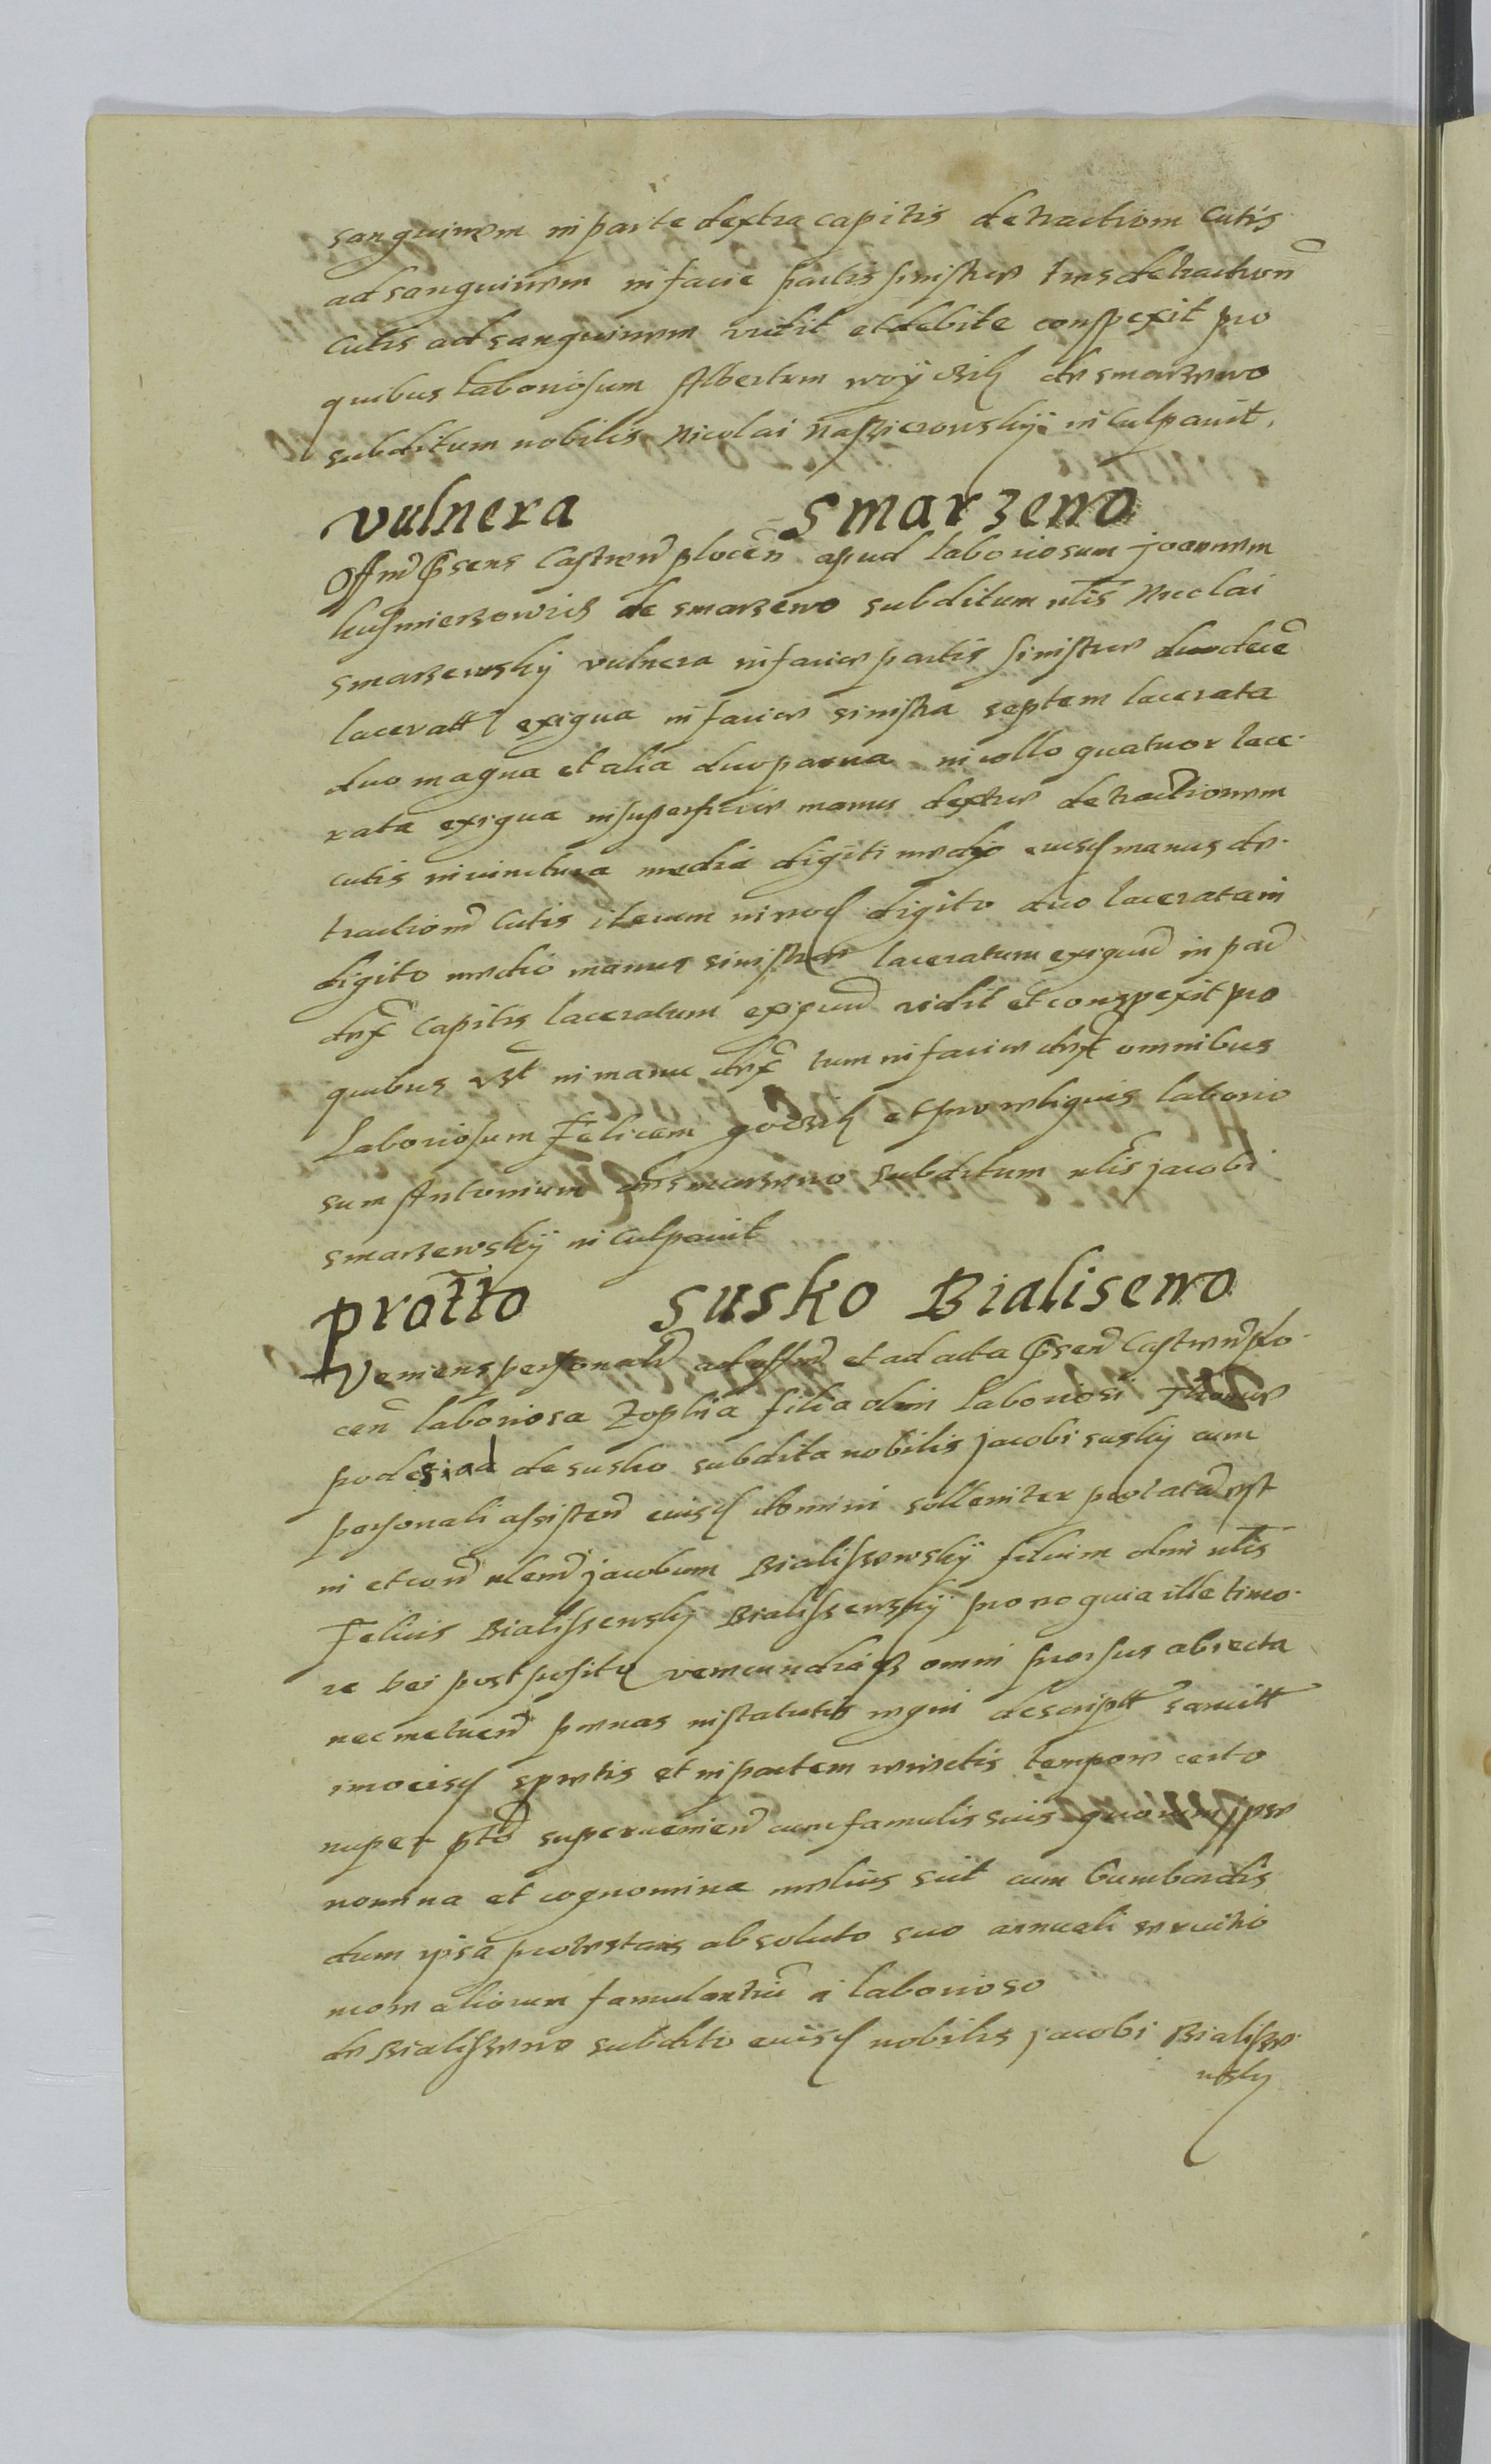 sanguinem in parte dextra capitis detractiom cutis
ad sanguinem in facie partis sinistre tres detraction
cutis ad sanguinem vidit et debite conspexit pro
quibus Laboriosum Albertum woÿczik de smarzewo
subditum nobilis Nicolai naszierowskÿ in culpauit.
vulnera smarzewo
Offm Pñsens Castren plocen apud laboriosum joannem
kusmierzowicz de smarzewo subditum nlis Nicolai
smarzewskÿ vulnera in facie partis sinistre duodece
laceratt exigua in facie sinistra septem lacerata
duo magna et alia duo parua in collo quatuor lace-
rata exigua in superficie manus dextre detractionem
cutis in iunctura media digiti medÿ eiusd manus de-
tractiom cutis iterum in eod digito duo lacerata in
digito medio manus sinistre laceratum exiguu in par
dex capitis laceratum exiguu vidit et conspexit pro
quibus vt in manu dex tum in facie dex omnibus
Laboriosum Felicem et pro reliquis laborio
sum Antonium de smarzewo subditum nlis jacobi
smarzewskÿ in culpauit
protto susko Bialisewo
Veniens personalr ad offm et ad acta Pñsen Castren plo-
cen laboriosa Zophia filia olim Laboriosi Thome
podesiad de susko subdita nobilis jacobi suskÿ cum
personali assisten eiusd domini solleniter protata est
in et con nlem jacobum Bialiszewskÿ filium olim nlis
Felicis Bialiszewskÿ Bialiszewskÿ pro eo quia ille timo-
re Dei postposito verecundiaqz omni prorsus abiecta
nec metuen penas in statutis regni descriptt sancitt
imo eisd spretis et in partem reiectis tempore certo
nuper pto superuenien cum famulis suis quorum ipse
nomina et cognomina melius scit cum bumbardis
dum ipsa protestans absoluto suo annuali seruitio
more aliorum famulantiu a laborioso
de Bialiszewo subdito eiusd nobilis jacobi Bialisze-
wskÿ